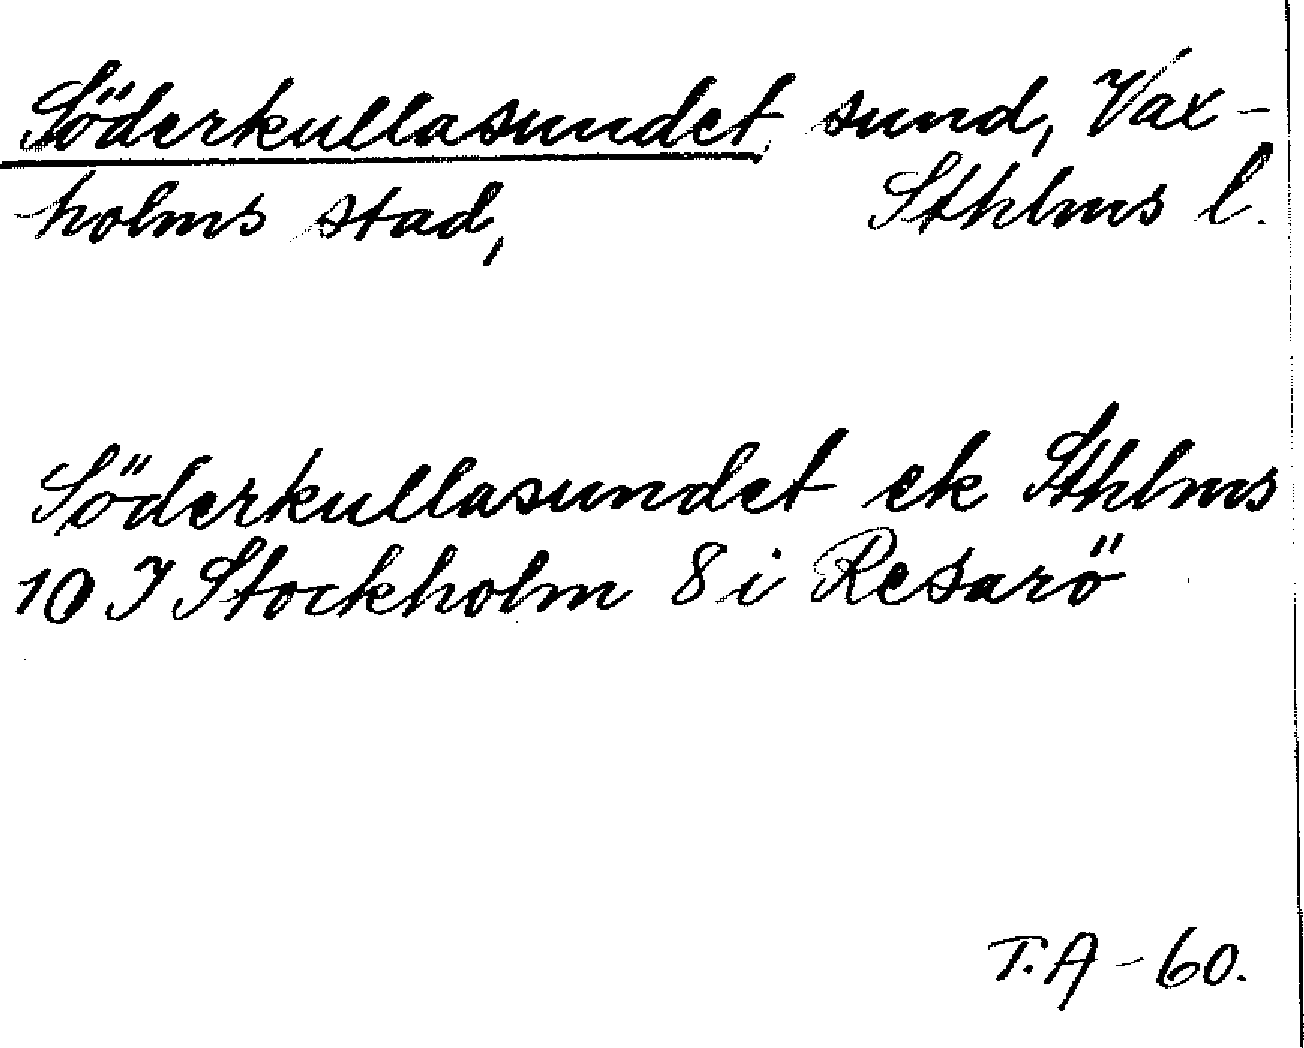 Söderkullasundet sund, Vax-
holms stad, Sthlms l.
Söderkullasundet ek Sthlms
10 I Stockholm 8 i Resarö
T.A - 60.